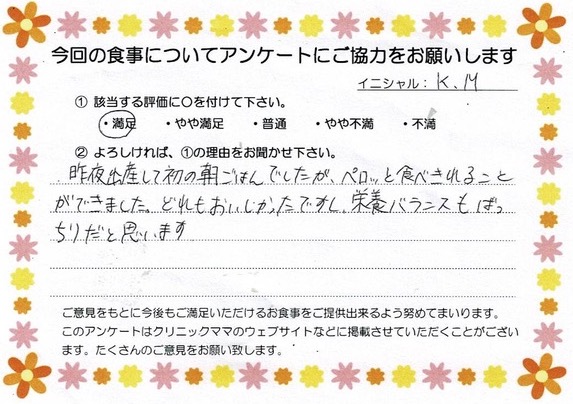 今回の食事についてアンケートにご協力をお願いします
イニシャル：K.M
① 該当する評価に○を付けて下さい。
・満足 ・やや満足 ・普通 ・やや不満 ・不満
② よろしければ、①の理由をお聞かせ下さい。
昨夜出産して初の朝ごはんでしたが、ペロッと食べきれること
ができました。どれもおいしかったですし、栄養バランスもばっ
ちりだと思います
ご意見をもとに今後もご満足いただけるお食事をご提供出来るよう努めてまいります。
このアンケートはクリニックママのウェブサイトなどに掲載させていただくことがござい
ます。たくさんのご意見をお願い致します。